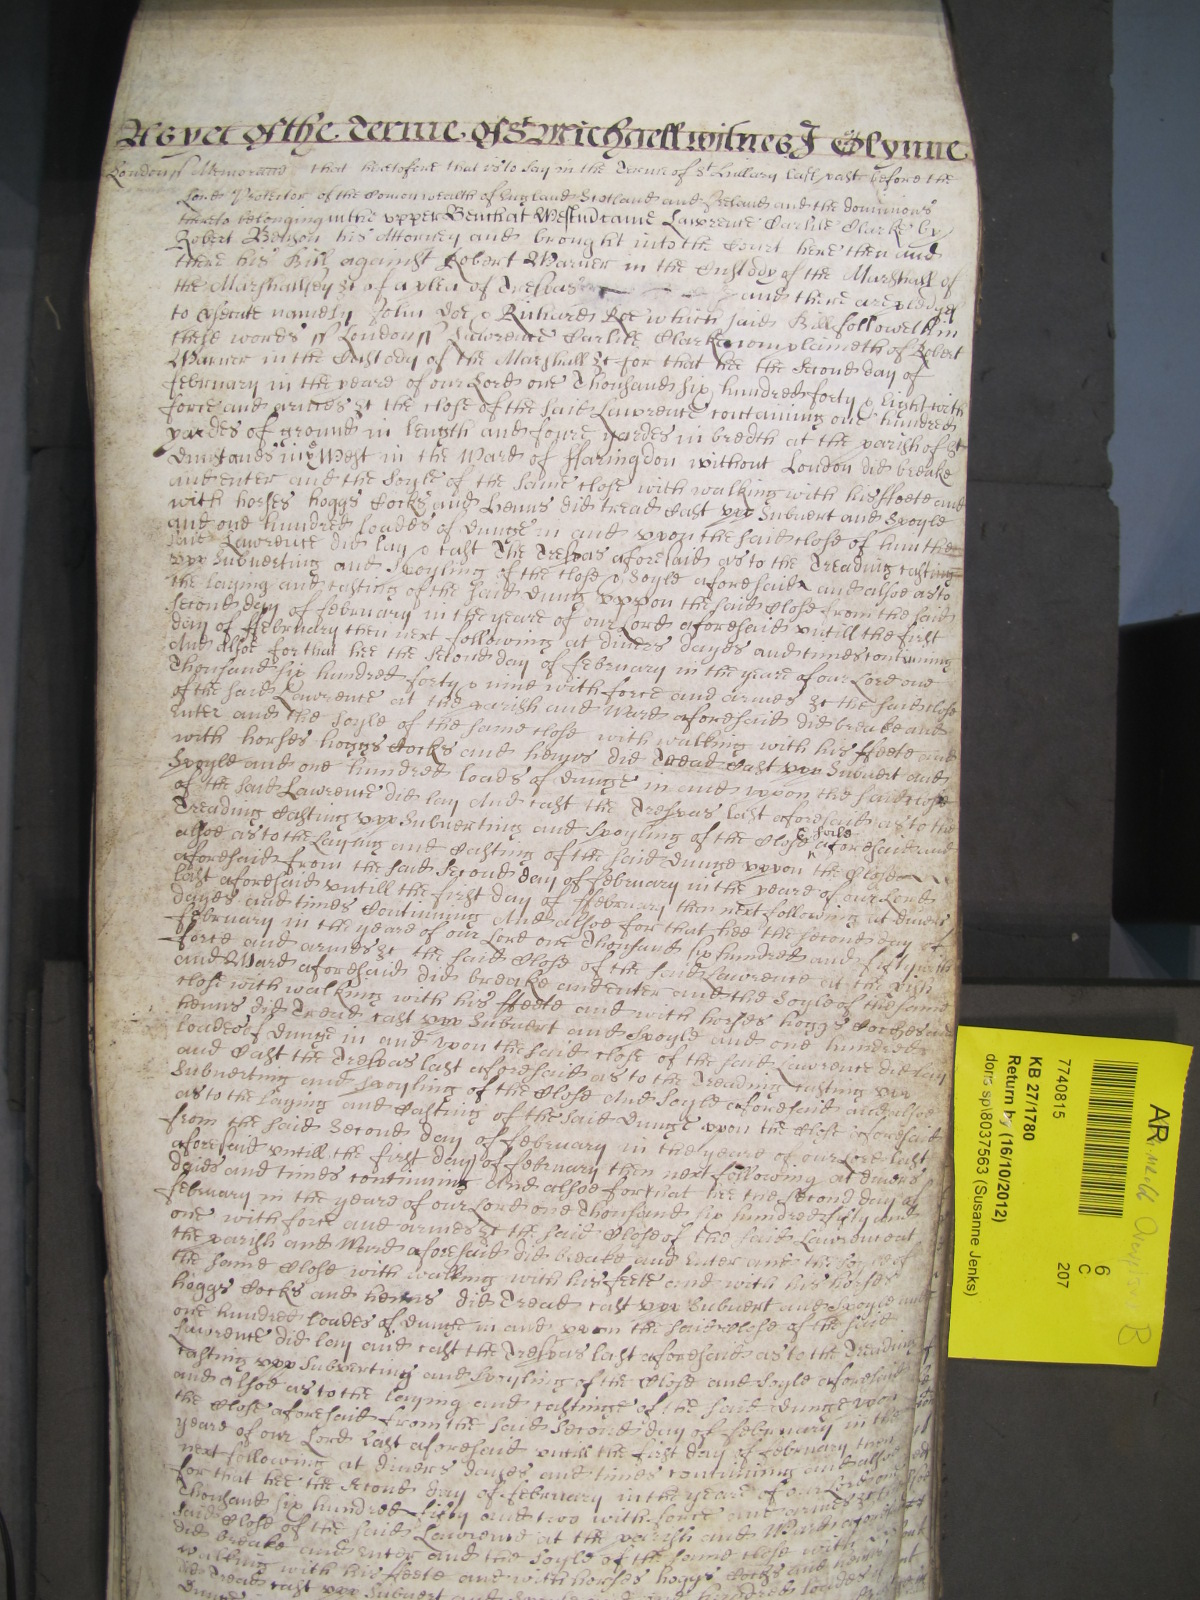 As yet of the Terme of St Michaell witnes J Glynne
London ss Memorand that heretofore that is to say in the Terme of St Hillary last past before the
Lord Protector of the Comonwealth of England Scotland and Ireland and the dominions
thereto belonging in the upper Bench at Westm came Lawrence Carlile Clarke by
Robert Benson his Attorney and brought into the Court here then and
there his Bill against Robert Warner in the Custody of the Marshall of
the Marshalsey &c of a plea of Trespas and there are pledges
to prosecute namely John Doe & Richard Roe which said Bill followeth in
these words ss London ss Lawrence Carlile Clarke complaineth of Robert
Warner in the Custody of the Marshall &c for that hee the second day of
February in the yeare of our Lord one Thousand six hundred forty & eight with
force and armes &c the close of the said Lawrence containing one hundred
yardes of ground in length and foure yardes in bredth at the parish of St
Dunstanes in ye West in the Ward of ffaringdon without London did breake
and enter and the soyle of the same close with walking with his ffeete and
with horses hoggs Cocks and henns did tread Cast upp Subvert and Spoyle
and one hundred loades of dunge in and upon the said close of him the
said Lawrence did lay & cast The Trespas aforesaid as to the Treading casting
upp Subverting and Spoyling of the close & Soyle aforesaid and alsoe as to
the laying and casting of the said dung uppon the said Close from the said
second day of february in the yeare of our Lord aforesaid untill the first
day of ffebruary then next following at divers dayes and times continuing
And alsoe for that hee the second day of february in the yeare of our Lord one
Thousand six hundred forty & nine with force and armes &c the said close
of the said Lawrence at the parish and Ward aforesaid did breake and
enter and the soyle of the same close with walking with his ffeete and
with horses hoggs Cocks and henns did Tread Cast upp Subvert and
Spoyle and one hundred loads of dunge in and uppon the said close
of the said Lawrence did lay And cast the Trespas last aforesaid as to the
Treading Casting upp Subverting and Spoyling of the Close & soile aforesaid and
alsoe as to the Laying and Casting of the said dunge uppon the Close
aforesaid from the said second day of february in the yeare of our Lord
last aforesaid untill the first day of ffebruary then next following at divers
dayes and times Continuing And alsoe for that hee the second day of
february in the yeare of our Lord one Thousand six hundred and fifty with
force and armes &c the said Close of the said Lawrence at the pish
and Ward aforesaid did breake and enter and the Soyle of the same
close with walking with his ffeete and with horses hoggs Cockes and
henns did Tread cast upp Subvert and Spoyle and one hundred
loades of dunge in and upon the said close of the said Lawrence did lay
and Cast the Trespas last aforesaid as to the Treading casting upp
Subverting and Spoyling of the Close And Soyle aforesaid and alsoe
as to the laying and Casting of the said dunge upon the Close aforesaid
from the said Second day of february in the yeare of our Lord last
aforesaid untill the first day of february then next following at divers
daies and times continuing And alsoe for that hee the second day of
february in the yeare of our Lord one Thousand six hundred fifty and
one with force and armes &c the said Close of the said Lawrence at
the parish and Ward aforesaid did breake and enter and the soyle of
the same Close with walking with his feete and with his horses
hoggs Cocks and henns did Tread cast upp Subvert and Spoyle and
one hundred loades of dunge in and upon the said Close of the said
Lawrence did lay and cast the Trespas last aforesaid as to the Treading
casting upp Subverting and Spoyling of the Close and Soyle aforesaid
and alsoe as to the laying and castinge of the said dunge upon
the Close aforesaid from the said Second day of february in the
yeare of our Lord last aforesaid untill the first day of february then
next following at divers dayes and times continuing and alsoe
for that hee the second day of february in the yeare of our Lord one
Thousand six hundred fifty and two with force and armes &c the
said Close of the said Lawrence at the parish and Ward aforesaid
did breake and enter and the soyle of the same close with
walking with his feete and with horses hoggs Cocks and henns
did Tread cast upp Subvert and Spoyle and one hundred loades of
dunge
AR
6
C
207
7740815
KB 27/1780
Return by (16/10/2012)
doris sp\8037563 (Susanne Jenks)